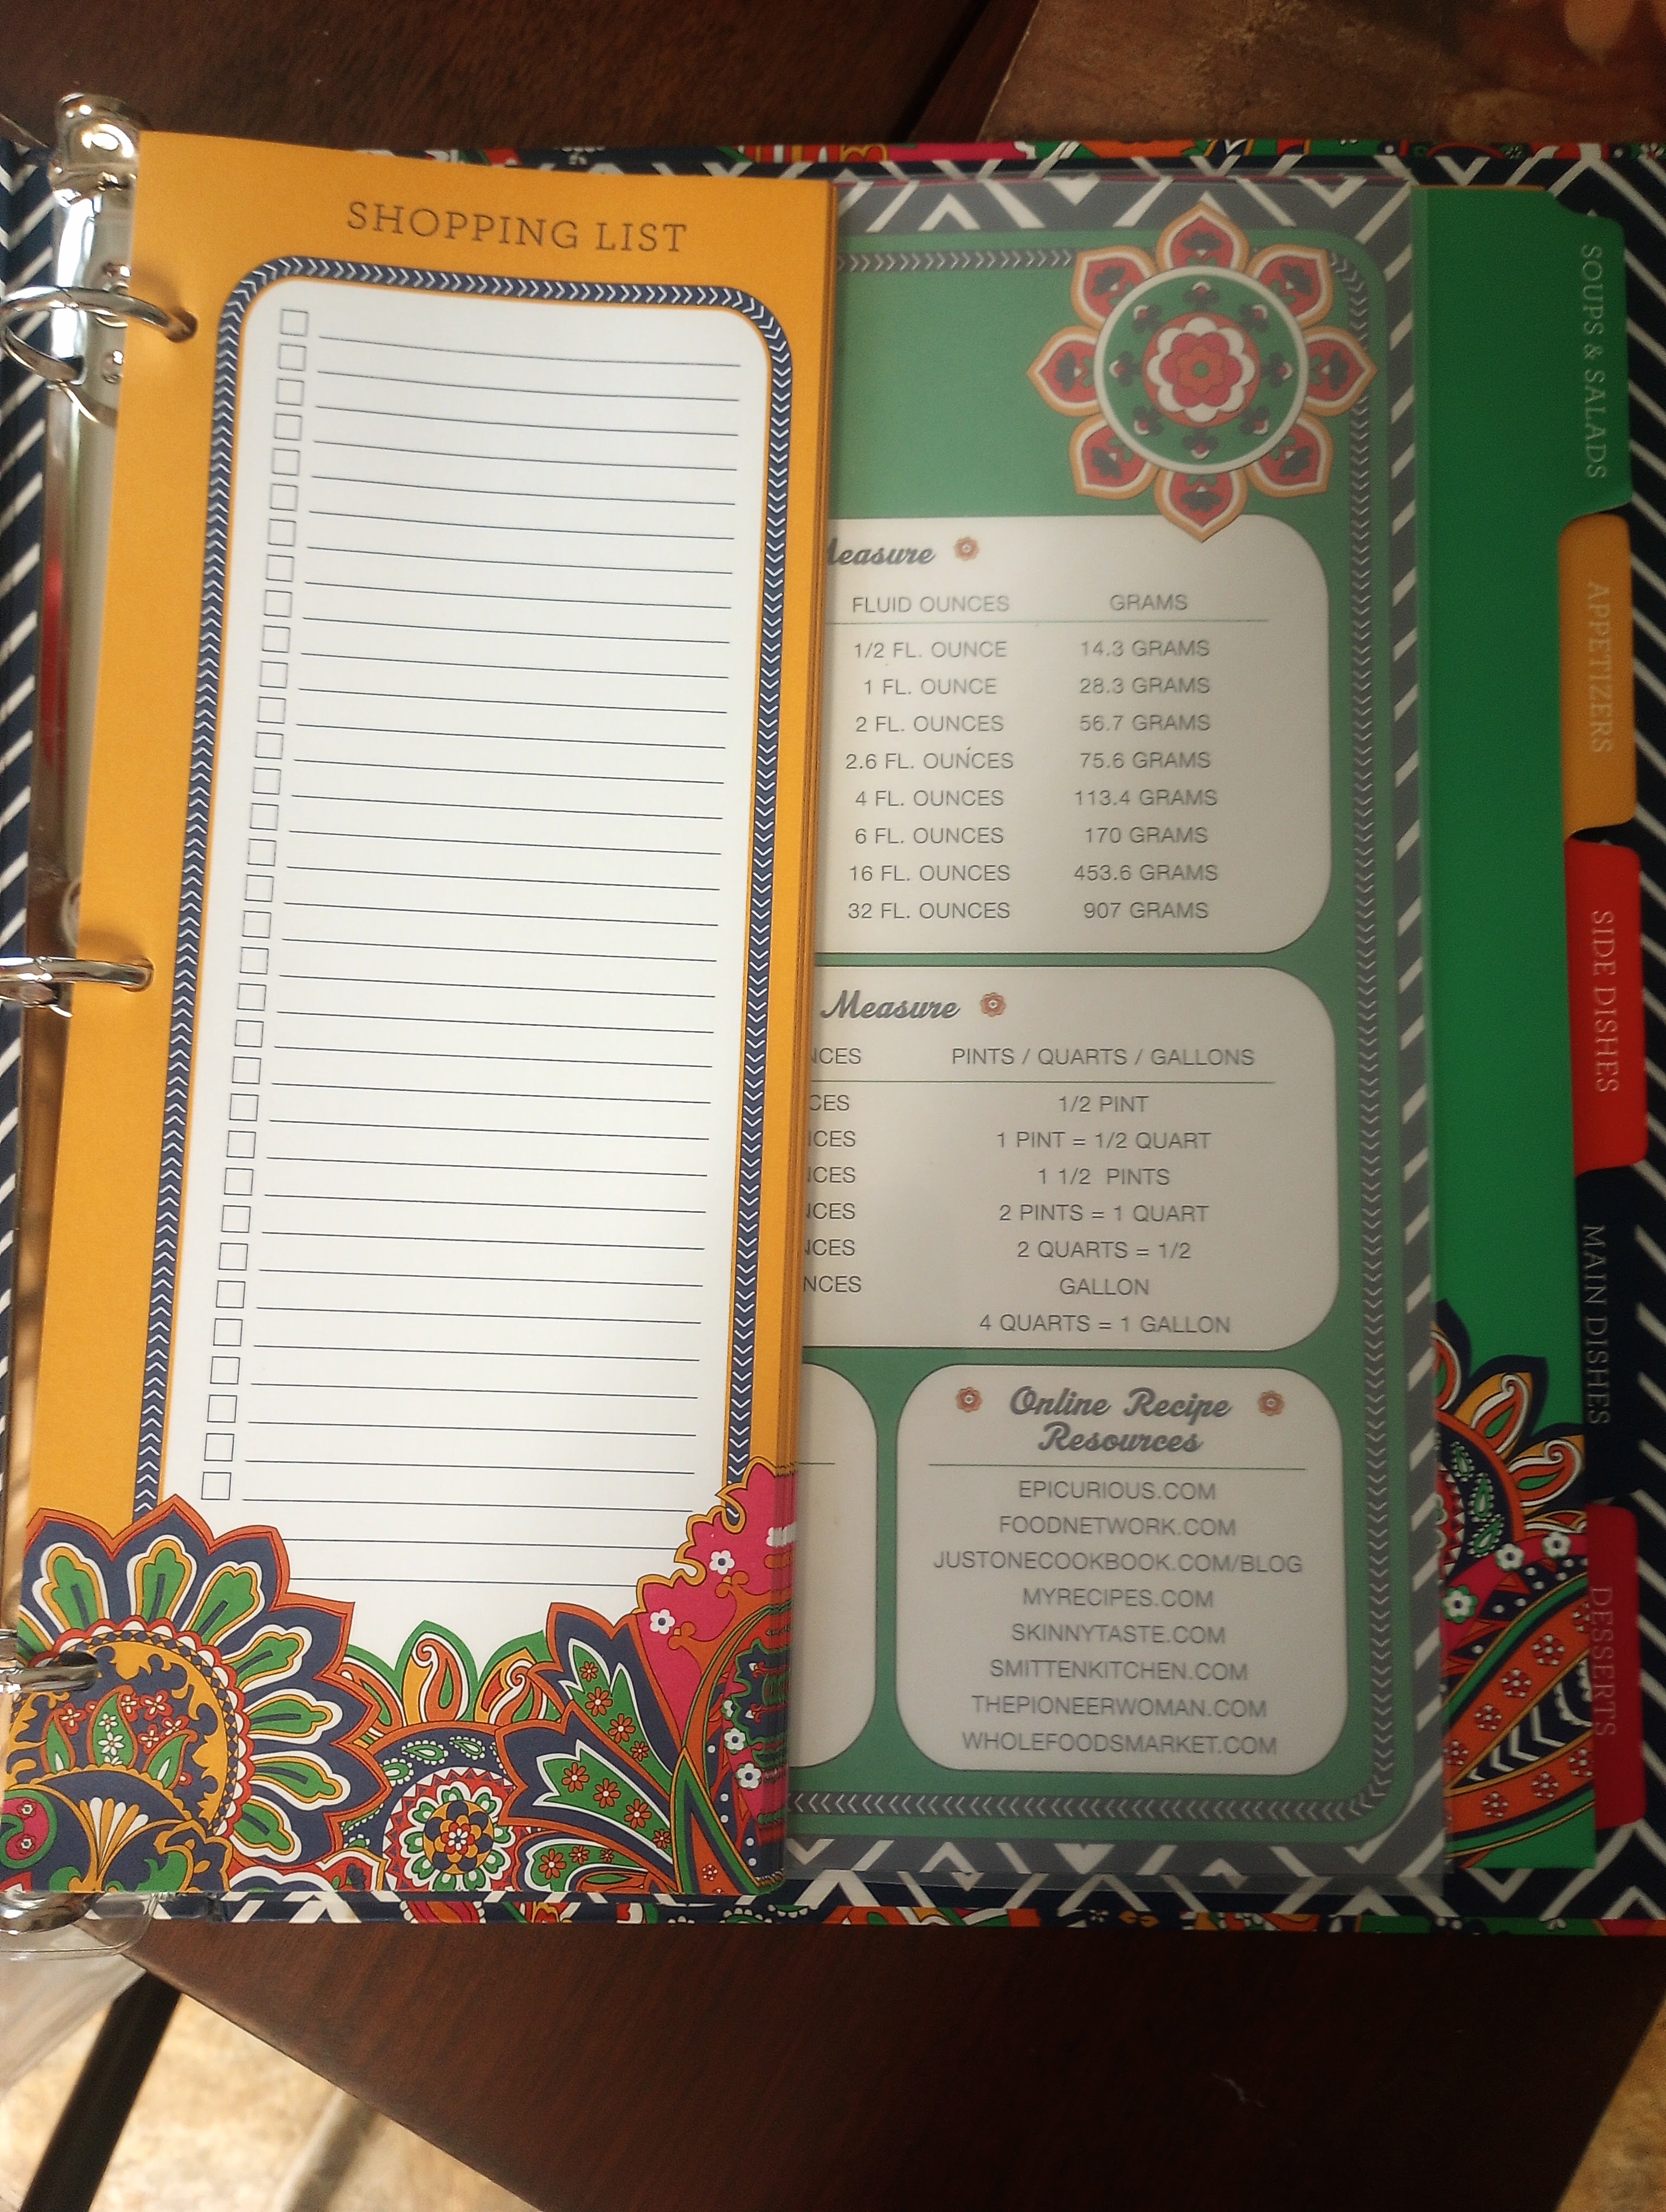 SHOPPING LIST
Measure
FLUID OUNCES GRAMS
1/2 FL. OUNCE 14.3 GRAMS
1 FL. OUNCE 28.3 GRAMS
2 FL. OUNCES 56.7 GRAMS
2.6 FL. OUNCES 75.6 GRAMS
4 FL. OUNCES 113.4 GRAMS
6 FL. OUNCES 170 GRAMS
16 FL. OUNCES 453.6 GRAMS
32 FL. OUNCES 907 GRAMS
Measure
PINTS / QUARTS / GALLONS
1/2 PINT
1 PINT = 1/2 QUART
1 1/2 PINTS
2 PINTS = 1 QUART
2 QUARTS = 1/2
GALLON
4 QUARTS = 1 GALLON
Online Recipe
Resources
EPICURIOUS.COM
FOODNETWORK.COM
JUSTONECOOKBOOK.COM/BLOG
MYRECIPES.COM
SKINNYTASTE.COM
SMITTENKITCHEN.COM
THEPIONEERWOMAN.COM
WHOLEFOODSMARKET.COM
SOUPS & SALADS
APPETIZERS
SIDE DISHES
MAIN DISHES
DESSERTS